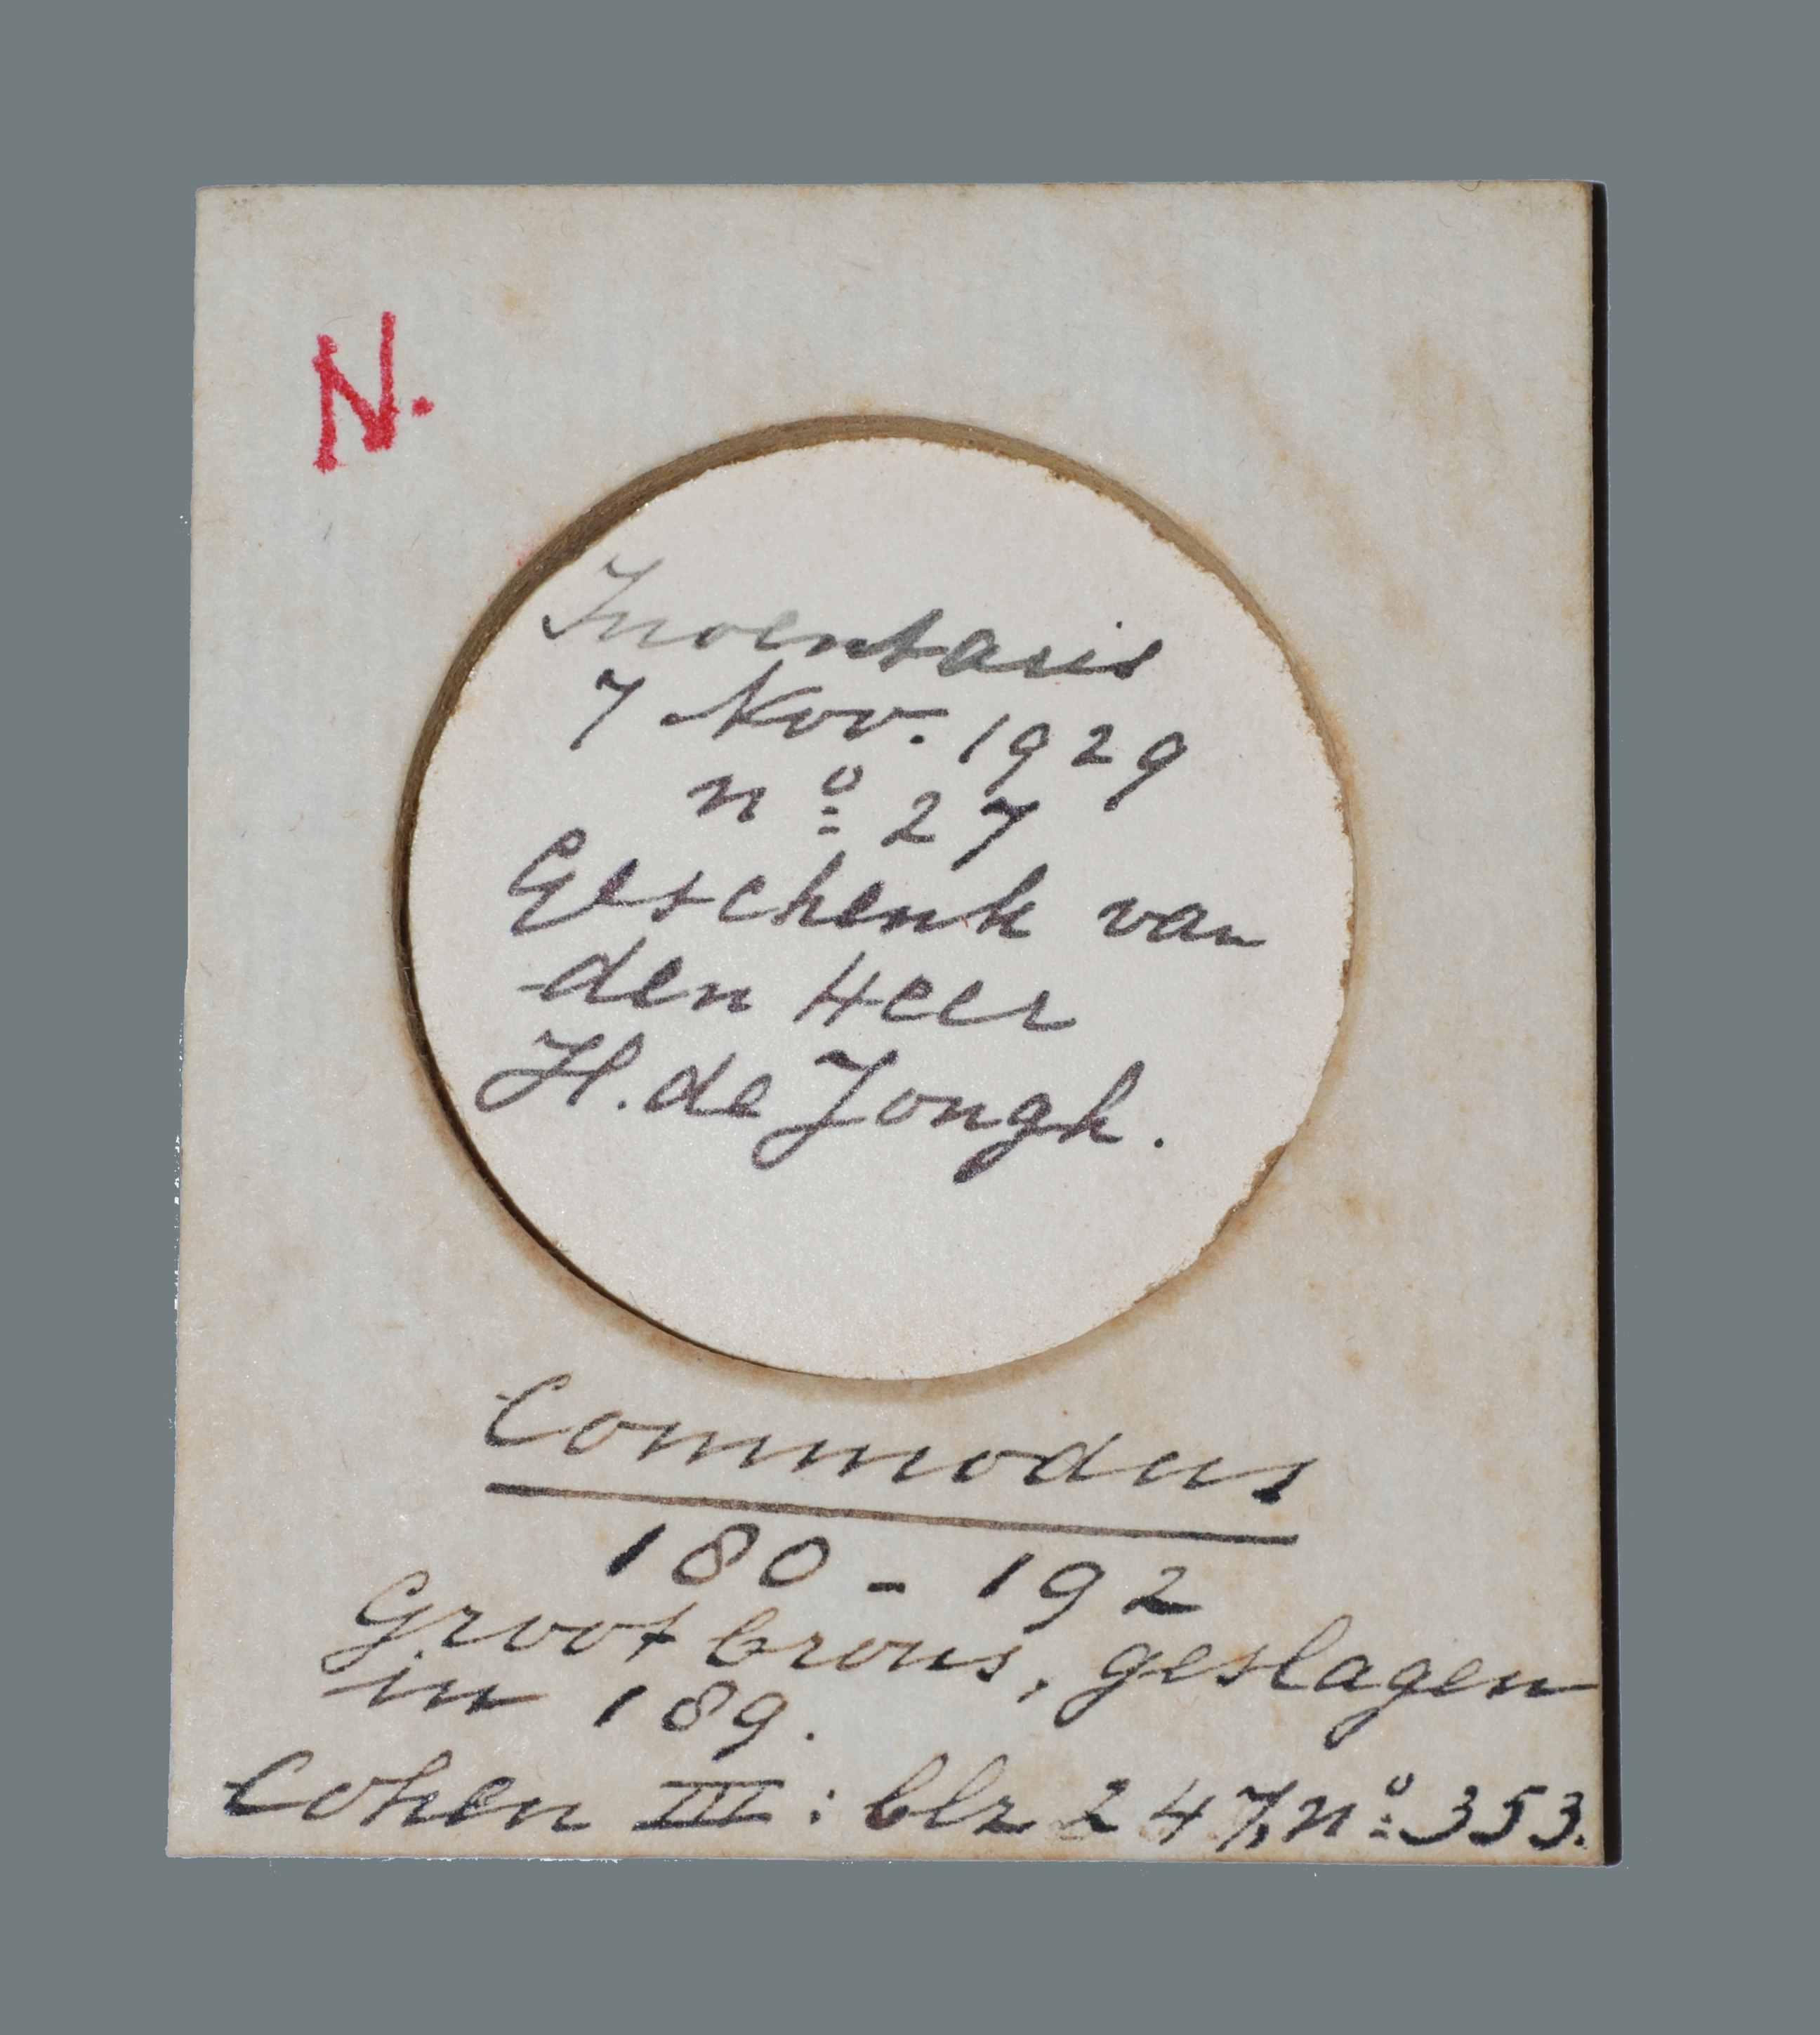 N.
Inventaris
7 Nov. 1929
nº 27
Geschenk van
den Heer
H. de Jongh.
Commodus
180 - 192
Groot brons, geslagen
in 189.
Cohen III : blz 247, nº 353.